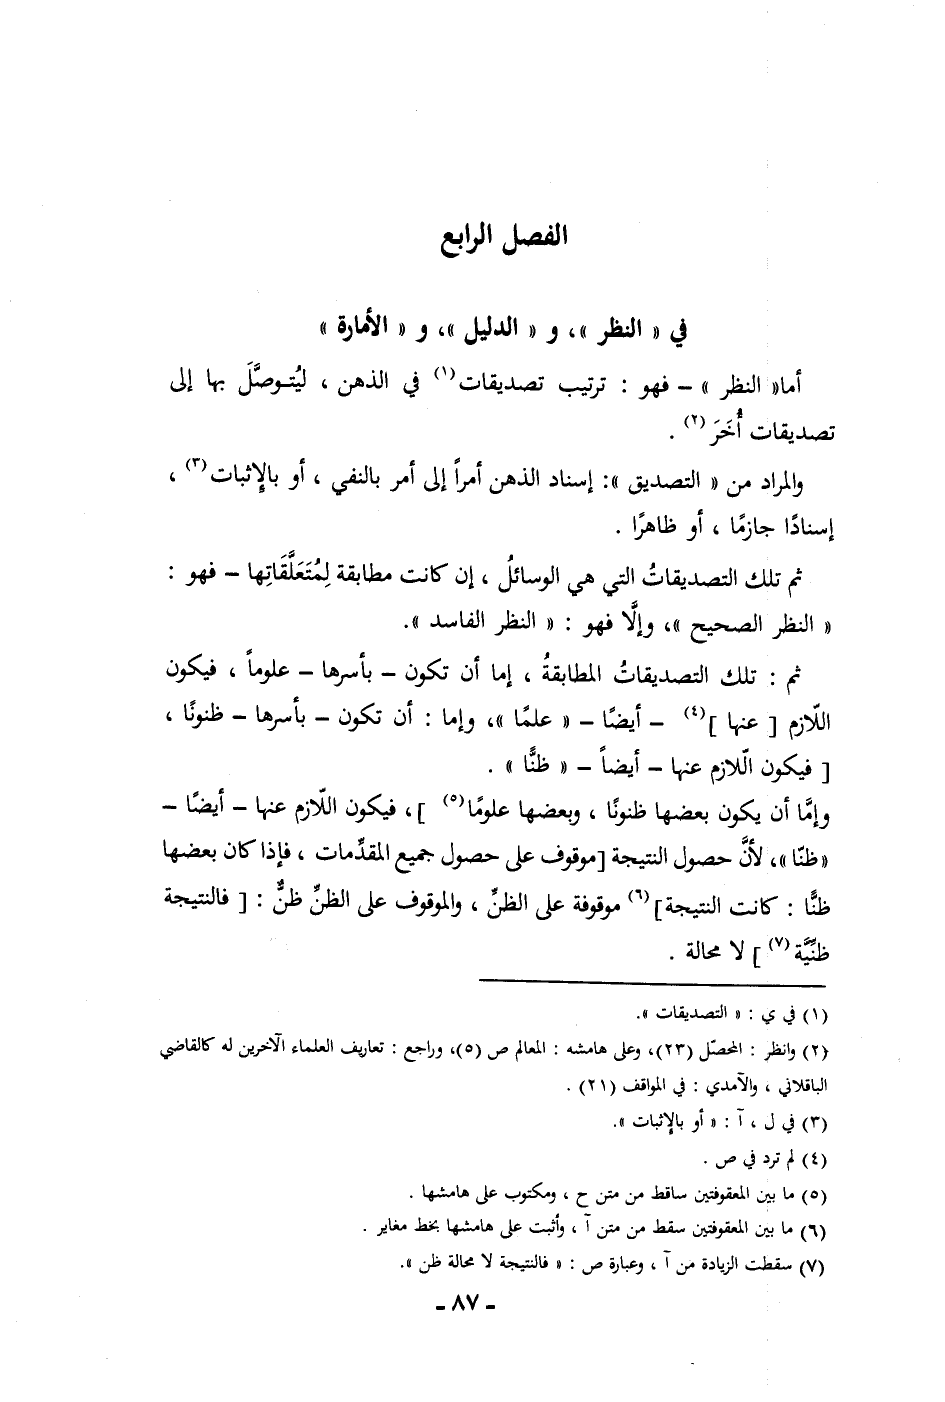 الفصل الرابع
في « النظر »، و « الدليل »، و « الأمارة »
أما« النظر » – فهو : ترتيب تصديقات(١) في الذهن ، ليُتـوصَّلَ بها إلى
تصديقات أُخَرَ (٢) .
والمراد من « التصديق »: إسناد الذهن أمراً إلى أمر بالنفي ، أو بالإِثبات(٣) ،
إسنادًا جازمًا ، أو ظاهرًا .
ثم تلك التصديقاتُ التي هي الوسائلُ ، إن كانت مطابقة لِمُتَعَلَّقَاتِها – فهو :
« النظر الصحيح »، وإلَّا فهو : « النظر الفاسد ».
ثم : تلك التصديقاتُ المطابقةُ ، إما أن تكون – بأسرها – علوماً ، فيكون
اللّازم [ عنها ](٤) – أيضًا – « علمًا »، وإما : أن تكون – بأسرها – ظنونًا ،
[ فيكون الّلازم عنها – أيضاً – « ظنًّا » .
وإمَّا أن يكون بعضها ظنونًا ، وبعضها علومًا(٥) ]، فيكون اللّازم عنها – أيضًا –
«ظنّا »، لأنَّ حصول النتيجة [موقوف على حصول جميع المقدِّمات ، فإذا كان بعضها
ظنًّا : كانت النتيجة](٦) موقوفة على الظنِّ ، والموقوف على الظنِّ ظنٌّ : [ فالنتيجة
ظنِّيَّة(٧) ] لا محالة .
(١) في ي : « التصديقات ».
(٢) وانظر : المحصّل (٢٣)، وعلى هامشه : المعالم ص (٥)، وراجع : تعاريف العلماء الآخرين له كالقاضي
الباقلاني ، والآمدي : في المواقف (٢١) .
(٣) في ل ، آ : « أو بالإِثبات ».
(٤) لم ترد في ص .
(٥) ما بين المعقوفتين ساقط من متن ح ، ومكتوب على هامشها .
(٦) ما بين المعقوفتين سقط من متن آ ، وأثبت على هامشها بخط مغاير .
(٧) سقطت الزيادة من آ ، وعبارة ص : « فالنتيجة لا محالة ظن ».
- ٨٧ -